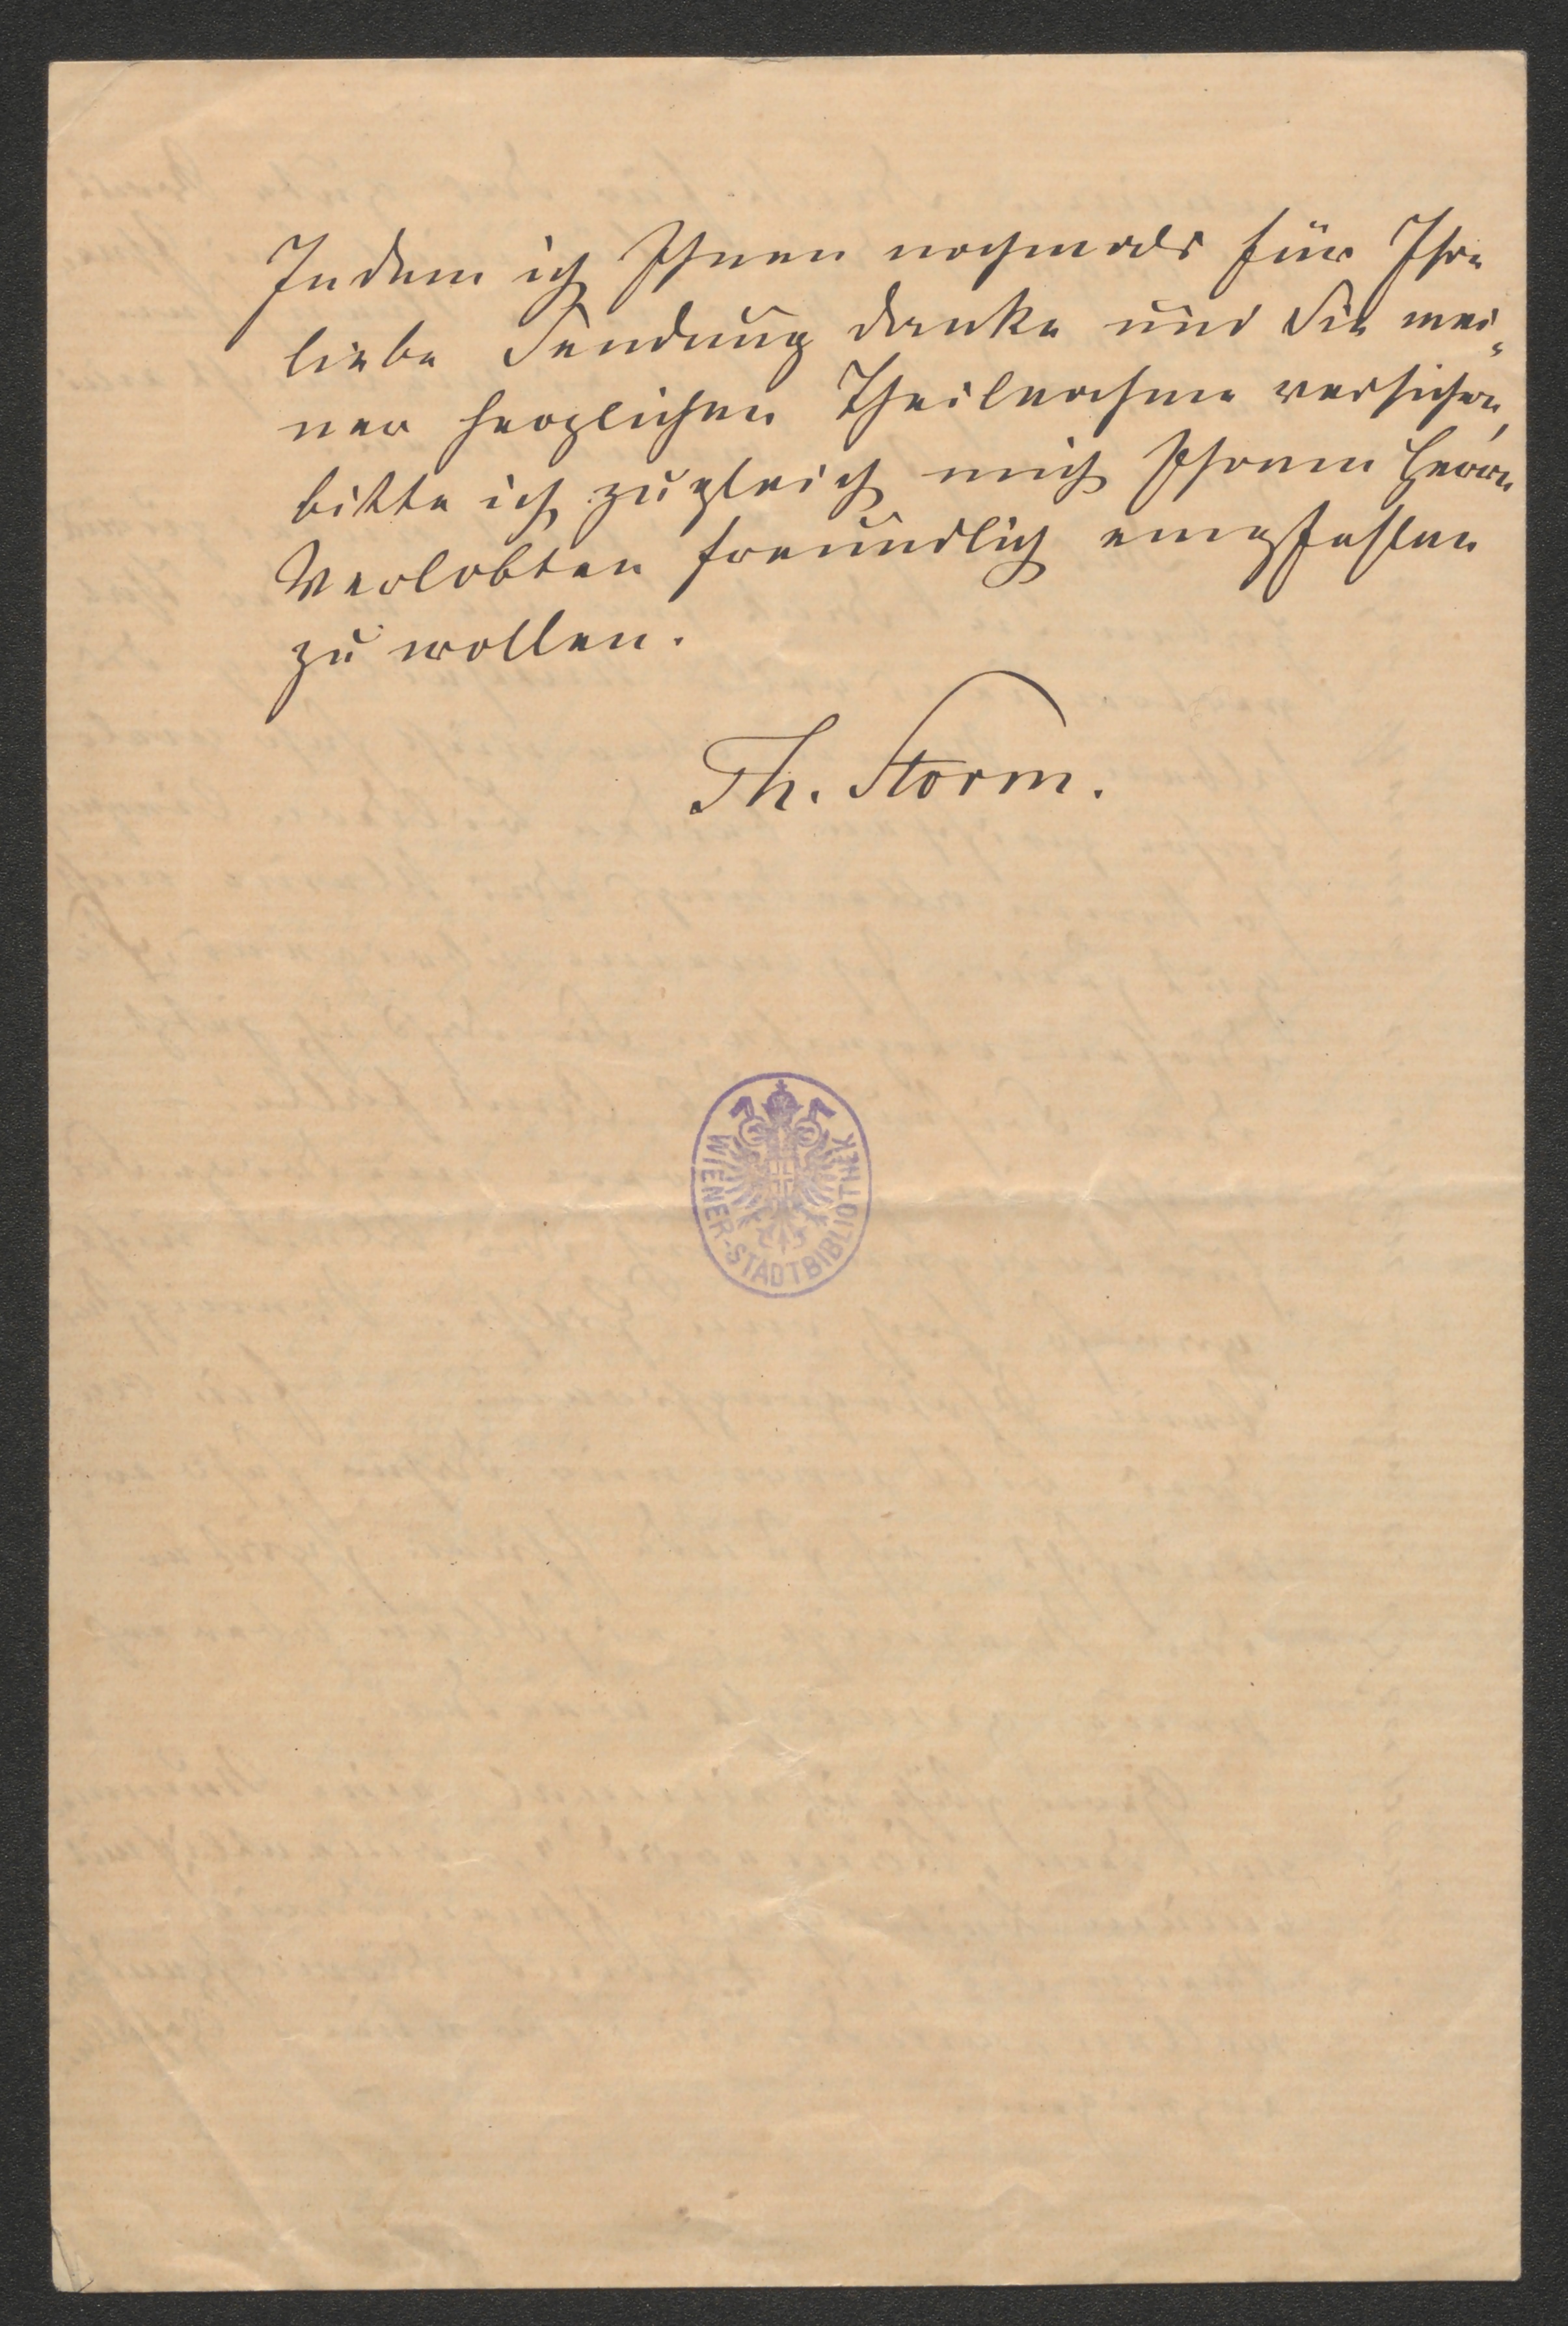 Indem ich Ihnen nochmals für Ihre
liebe Sendung danke und Sie mei-
ner herzlichen Theilnahme versichere,
bitte ich zugleich mich Ihrem Herrn
Verlobten freundlich empfehlen
zu wollen.
Th. Storm.
WIENER-STADTBIBLIOTHEK